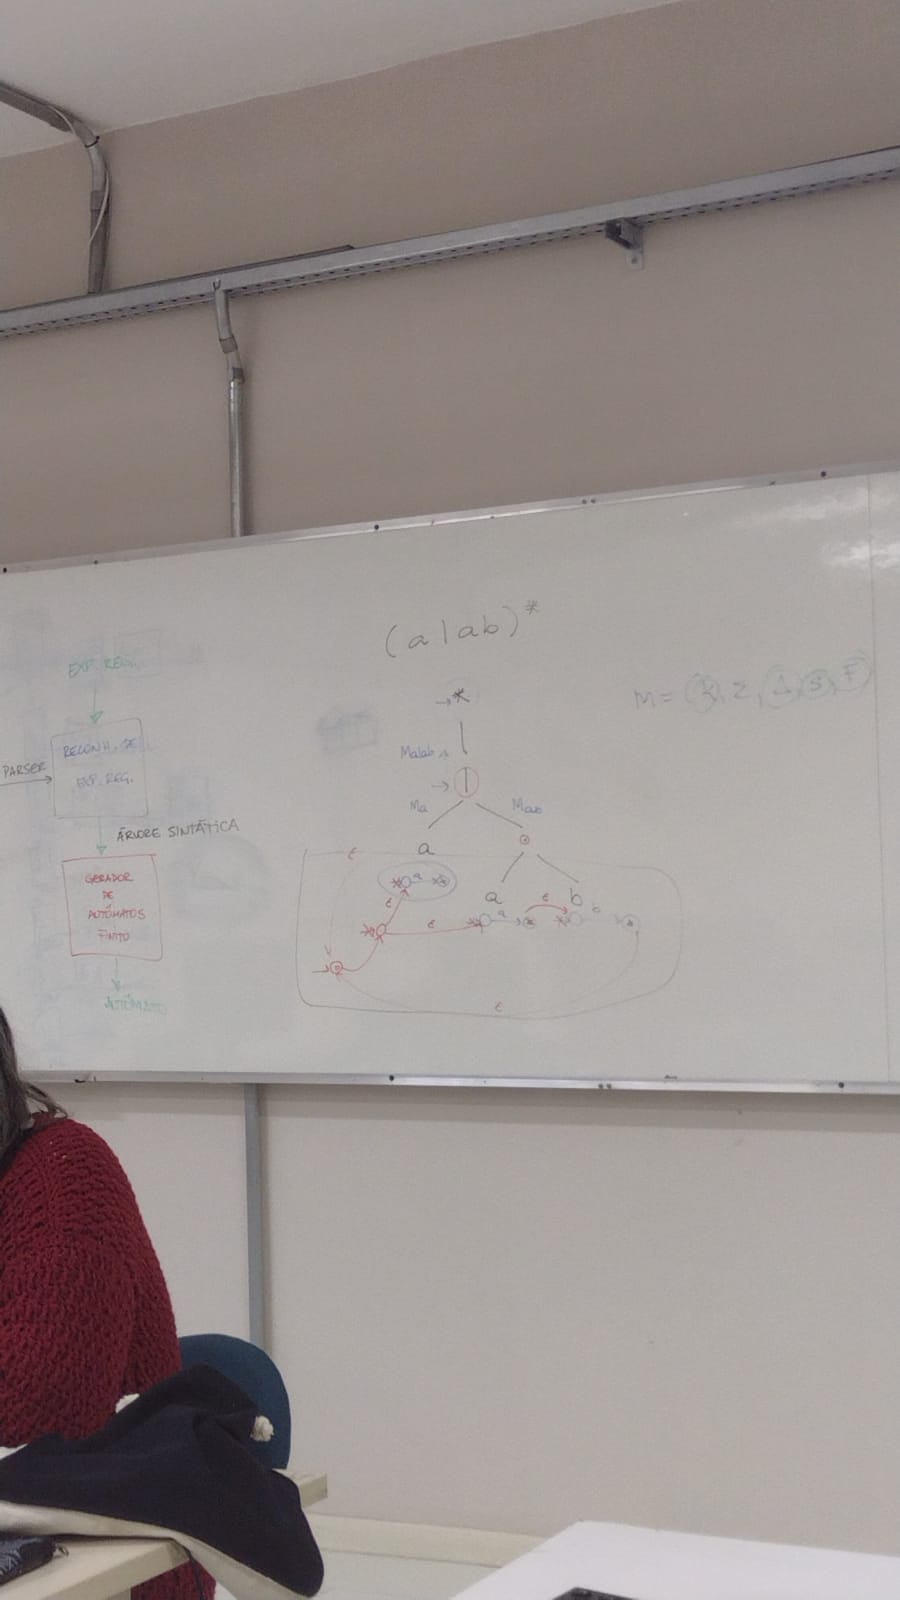 (a|ab)*
EXP. REG.
PARSER
RECONH. DE
EXP. REG.
ÁRVORE SINTÁTICA
GERADOR
DE
AUTÔMATOS
FINITO
AUTÔMATO
*
Ma|ab
|
Ma
a
a
b
ε
a
ε
ε
a
ε
b
ε